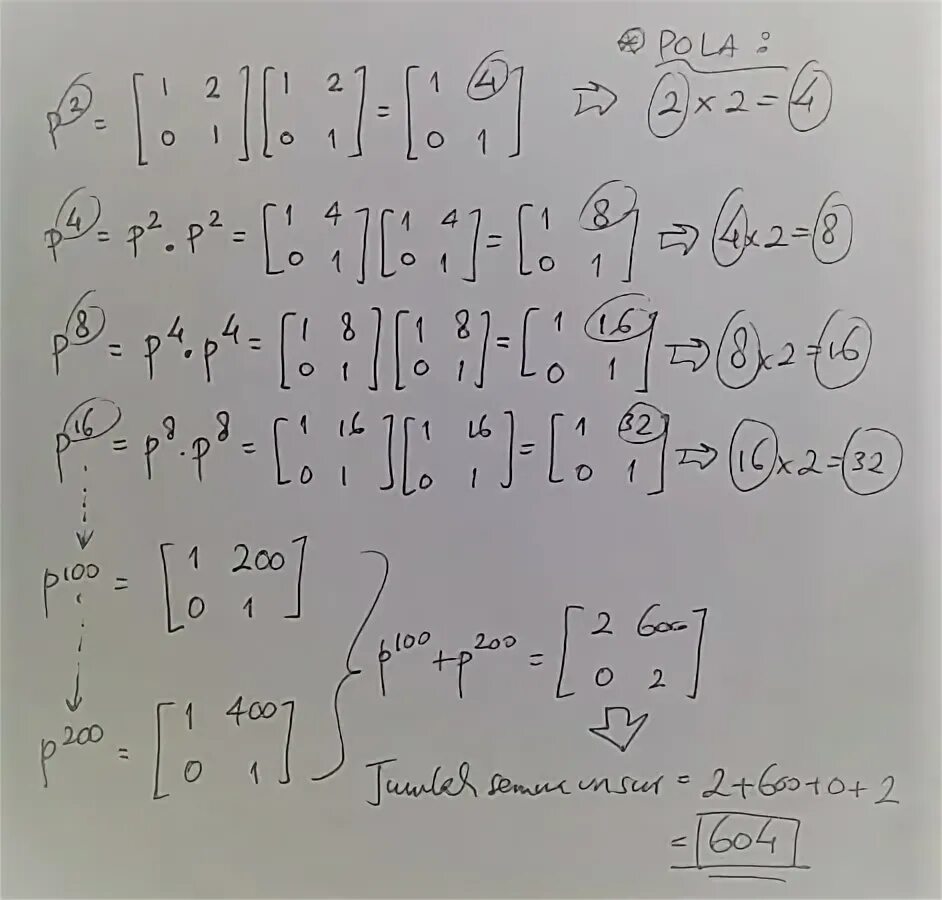 ⊛ POLA :
p² = [1 2; 0 1] [1 2; 0 1] = [1 4; 0 1] ⇨ 2 × 2 = 4
p⁴ = p² . p² = [1 4; 0 1] [1 4; 0 1] = [1 8; 0 1] ⇨ 4 × 2 = 8
p⁸ = p⁴ . p⁴ = [1 8; 0 1] [1 8; 0 1] = [1 16; 0 1] ⇨ 8 × 2 = 16
p¹⁶ = p⁸ . p⁸ = [1 16; 0 1] [1 16; 0 1] = [1 32; 0 1] ⇨ 16 × 2 = 32
p¹⁰⁰ = [1 200; 0 1]
p¹⁰⁰ + p²⁰⁰ = [2 600; 0 2]
p²⁰⁰ = [1 400; 0 1]
Jumlah semua unsur = 2 + 600 + 0 + 2
= 604